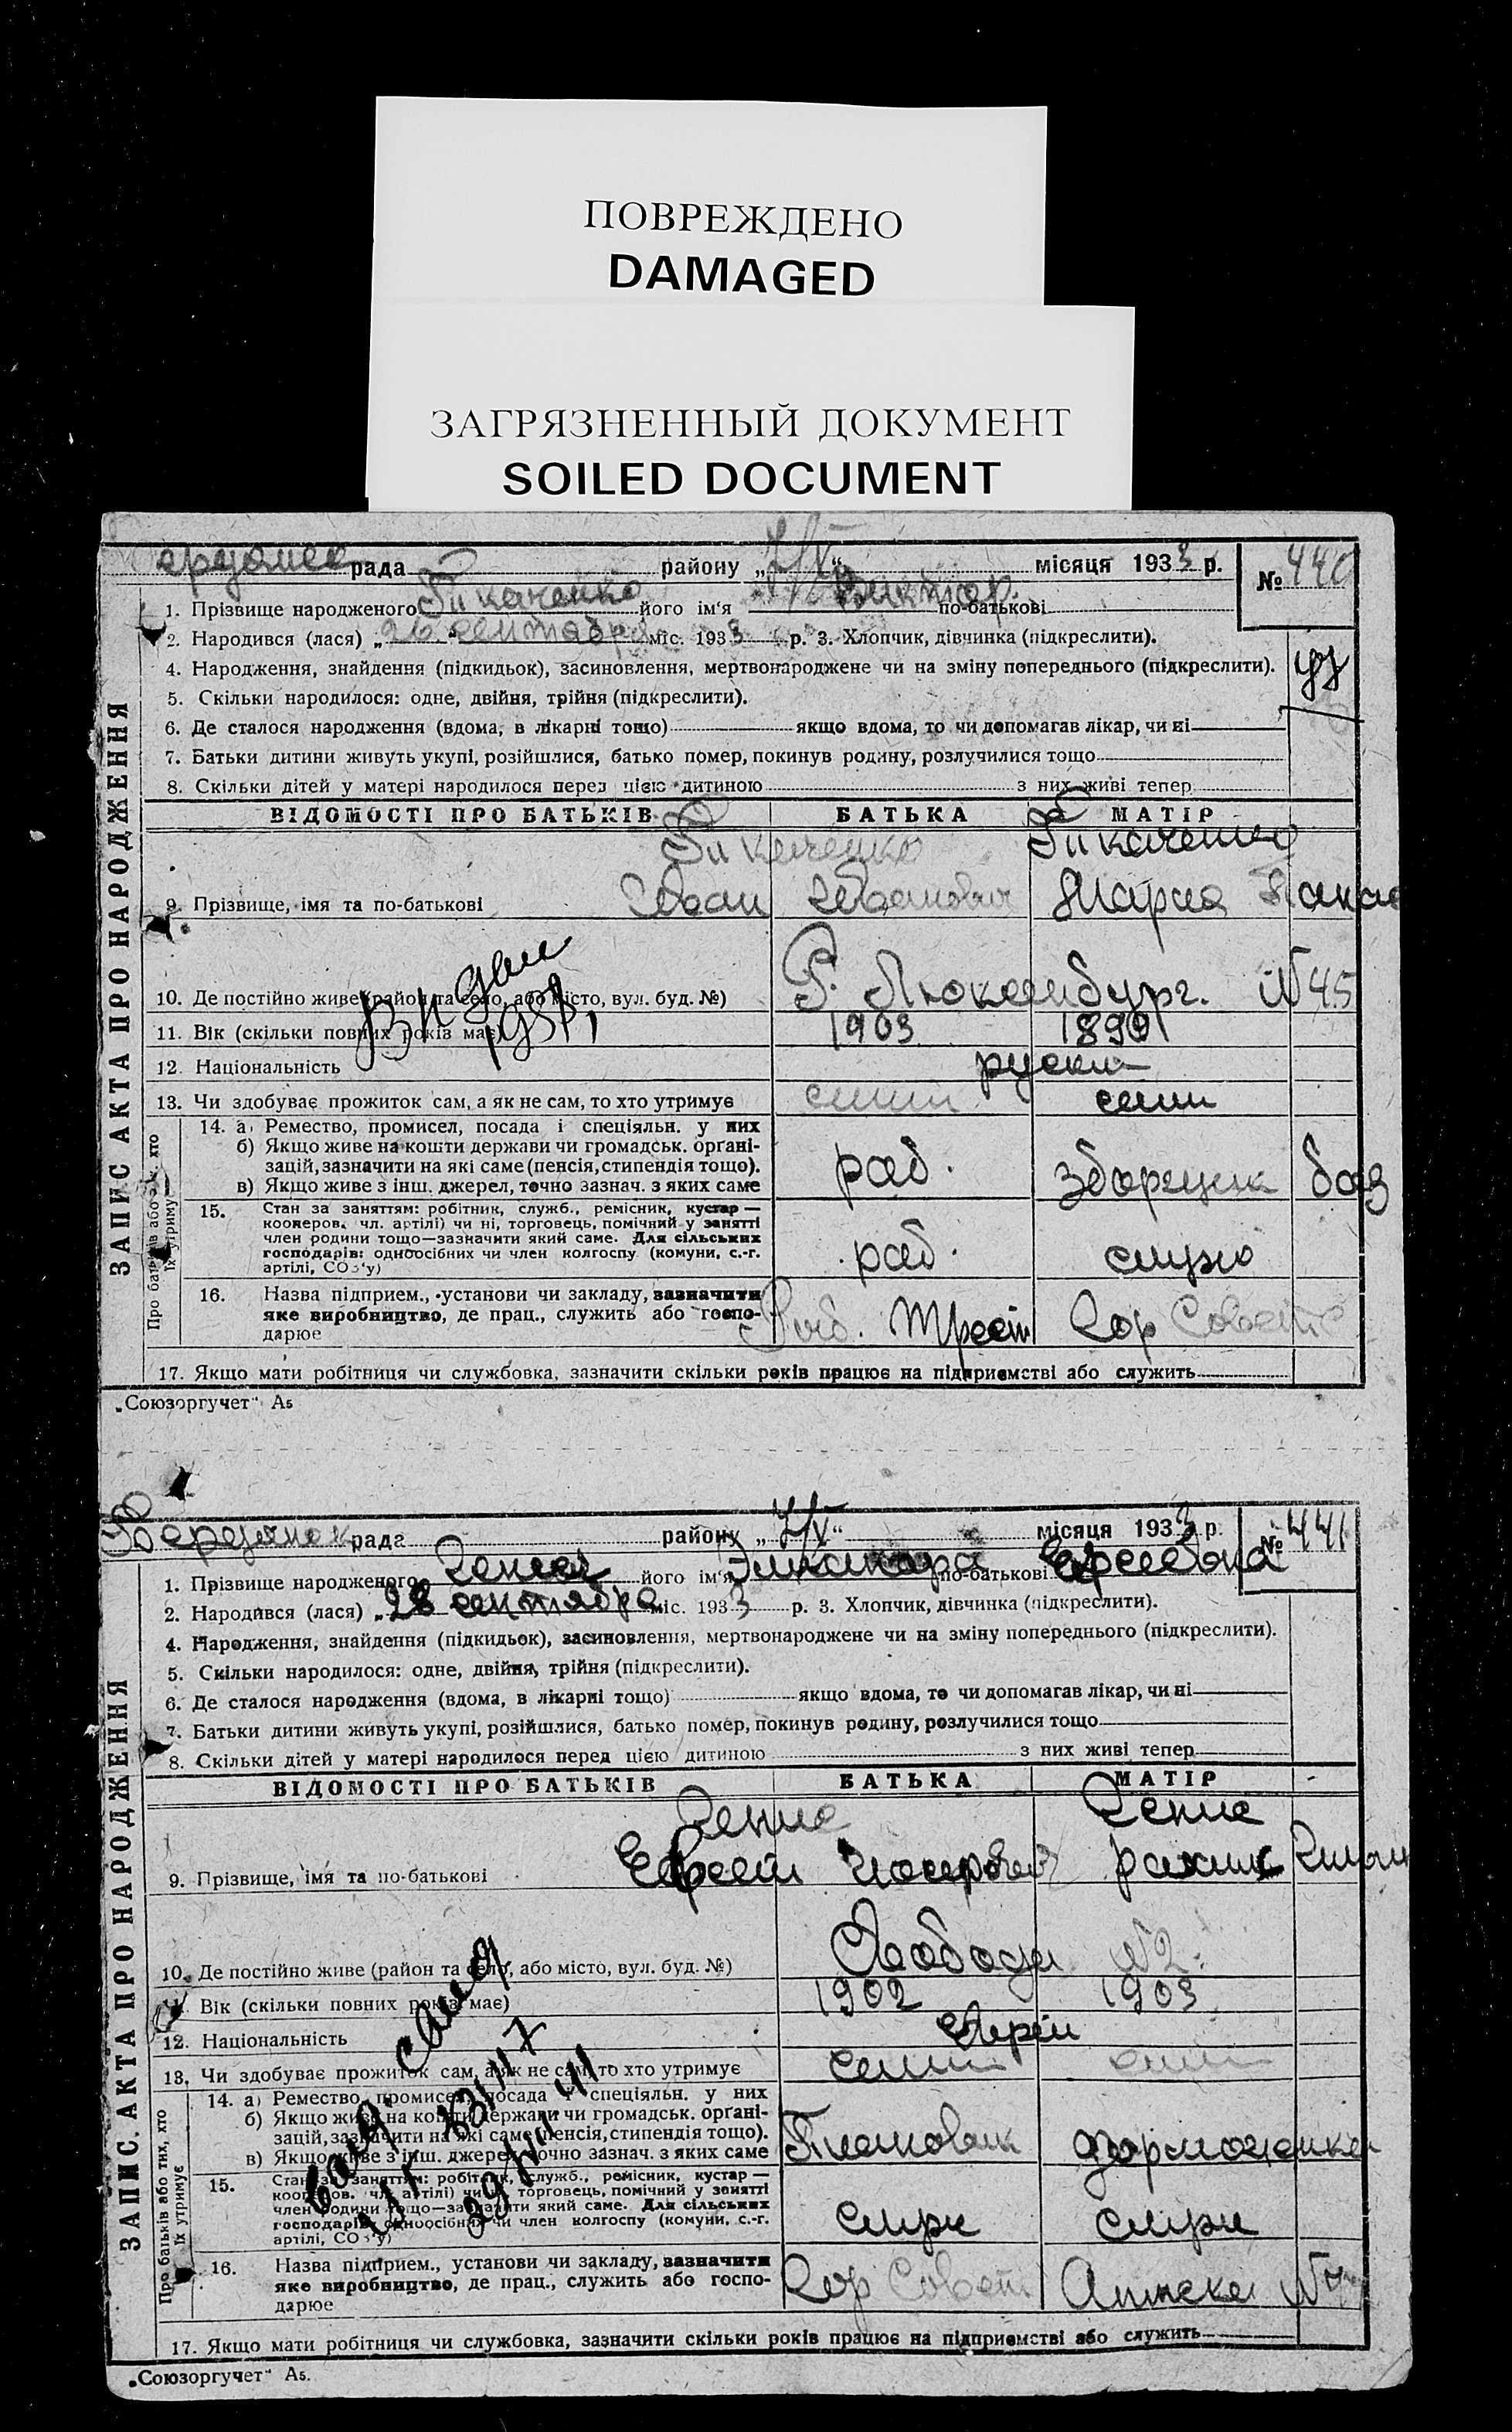 ПОВРЕЖДЕНО
DAMAGED
ЗАГРЯЗНЕННЫЙ ДОКУМЕНТ
SOILED DOCUMENT
рада району „ 7/X “ місяця 1933 р. № 440
1. Прізвище народженого Ткаченко його ім'я Виктор. по-батькові
2. Народився (лася) „26 сентября міс. 1933 р. 3. Хлопчик, дівчинка (підкреслити).
4. Народження, знайдення (підкидьок), засиновлення, мертвонароджене чи на зміну попереднього (підкреслити).
5. Скільки народилося: одне, двійня, трійня (підкреслити).
6. Де сталося народження (вдома, в лікарні тощо) якщо вдома, то чи допомагав лікар, чи ні
7. Батьки дитини живуть укупі, розійшлися, батько помер, покинув родину, розлучилися тощо
8. Скільки дітей у матері народилося перед цією дитиною з них живі тепер
ЗАПИС АКТА ПРО НАРОДЖЕННЯ
ВІДОМОСТІ ПРО БАТЬКІВ БАТЬКА МАТІР
Ткаченко Ткаченко
9. Прізвище, імя та по-батькові Иван Иванович Мария
10. Де постійно живе (район та село, або місто, вул. буд. №) Р. Люксембург. №45
11. Вік (скільки повних років має) 1903 1890
12. Національність руский
13. Чи здобуває прожиток сам, а як не сам, то хто утримує
Про батьків або тих, хто їх утримує
14. а) Ремество, промисел, посада і спеціяльн. у них
б) Якщо живе на кошти держави чи громадськ. органі-
зацій, зазначити на які саме (пенсія, стипендія тощо).
в) Якщо живе з інш. джерел, точно зазнач. з яких саме
раб.
15. Стан за заняттям: робітник, служб., ремісник, кустар —
кооперов. чл. артілі) чи ні, торговець, помічний у занятті
член родини тощо—зазначити який саме. Для сільських
господарів: одноосібних чи член колгоспу (комуни, с.-г.
артілі, СОЗ'у)
раб. служ
16. Назва підприєм., установи чи закладу, зазначити
яке виробництво, де прац., служить або госпо-
дарює
Трест Гор Совет
17. Якщо мати робітниця чи службовка, зазначити скільки років працює на підприємстві або служить
„Союзоргучет“ А5
Бердянск рада району „ 7/X “ місяця 1933 р. № 441
1. Прізвище народженого його ім'я по-батькові
2. Народився (лася) „28 сентября міс. 1933 р. 3. Хлопчик, дівчинка (підкреслити).
4. Народження, знайдення (підкидьок), засиновлення, мертвонароджене чи на зміну попереднього (підкреслити).
5. Скільки народилося: одне, двійня, трійня (підкреслити).
6. Де сталося народження (вдома, в лікарні тощо) якщо вдома, то чи допомагав лікар, чи ні
7. Батьки дитини живуть укупі, розійшлися, батько помер, покинув родину, розлучилися тощо
8. Скільки дітей у матері народилося перед цією дитиною з них живі тепер
ЗАПИС АКТА ПРО НАРОДЖЕННЯ
ВІДОМОСТІ ПРО БАТЬКІВ БАТЬКА МАТІР
9. Прізвище, імя та по-батькові
10. Де постійно живе (район та село, або місто, вул. буд. №) Свобода №2.
11. Вік (скільки повних років має) 1902 1903
12. Національність Еврей
13. Чи здобуває прожиток сам, а як не сам, то хто утримує
Про батьків або тих, хто їх утримує
14. а) Ремество, промисел, посада і спеціяльн. у них
б) Якщо живе на кошти держави чи громадськ. органі-
зацій, зазначити на які саме (пенсія, стипендія тощо).
в) Якщо живе з інш. джерел, точно зазнач. з яких саме
Плановик
15. Стан за заняттям: робітник, служб., ремісник, кустар —
кооперов. чл. артілі) чи ні, торговець, помічний у занятті
член родини тощо—зазначити який саме. Для сільських
господарів: одноосібних чи член колгоспу (комуни, с.-г.
артілі, СОЗ'у)
служ служ
16. Назва підприєм., установи чи закладу, зазначити
яке виробництво, де прац., служить або госпо-
дарює
Гор Совет Аптека
17. Якщо мати робітниця чи службовка, зазначити скільки років працює на підприємстві або служить
„Союзоргучет“ А5.